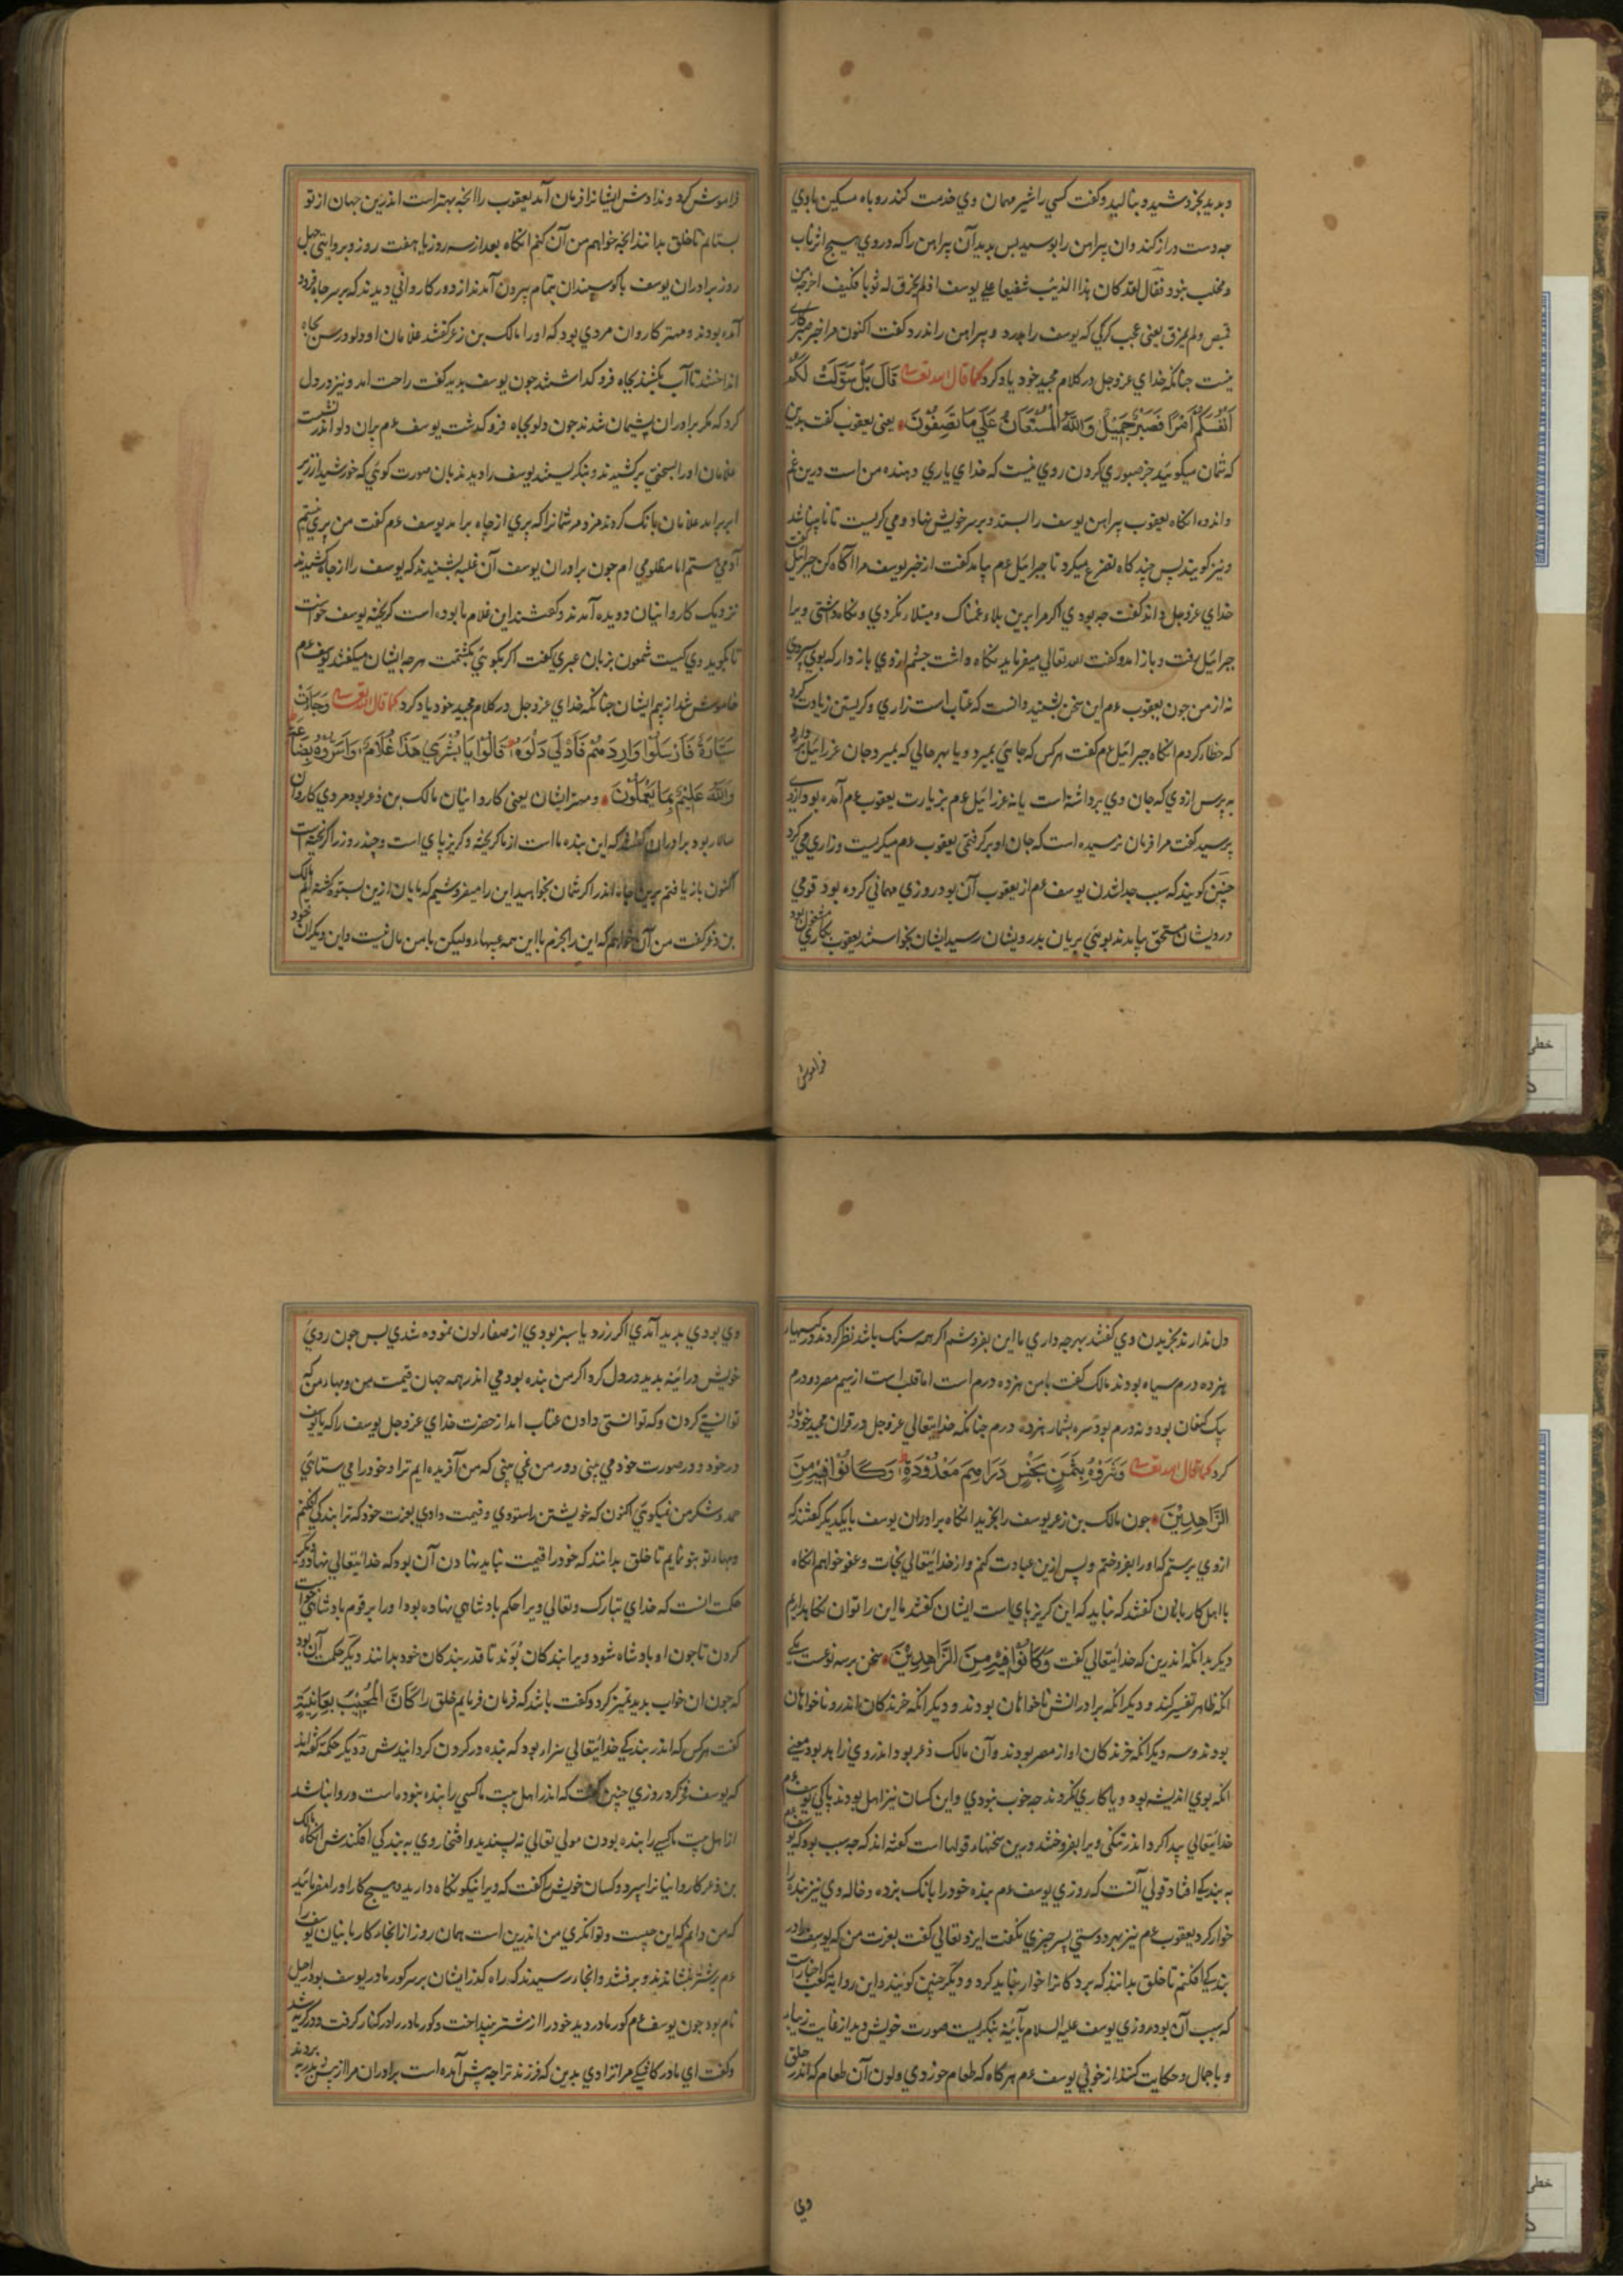 و بدید بخروشید و بنالید و گفت کسی را شیر مهمان وي خدمت کند روباه مسکین باوي
چه دست دراز کند و ان پیراهن را ببوسید پس بدید آن پیراهن را که در وي هیچ اثر ناب
و مخلب نبود فقال لقد کان هذا الذیب شفیعا علي یوسف اذ لم یخرق له ثوبا فکیف
قمیص و لم یمزق یعنی عجب گرگي که یوسف را بدرد و پیراهن را ندرد گفت اکنون مرا جز صبر
نیست چنانکه خداي عزوجل در کلام مجید خود یاد کرد کما قال الله تعالی قَالَ بَلْ سَوَّلَتْ لَكُمْ
أَنْفُسُكُمْ أَمْرًا فَصَبْرٌ جَمِيلٌ وَاللَّهُ الْمُسْتَعَانُ عَلَي مَا تَصِفُونَ یعنی یعقوب گفت بدین
که شمان میگوئید جز صبوري کردن روي نیست که خداي یاري دهنده من است درین غم
و اندوه انگاه یعقوب پیراهن یوسف را بستد و بر سر خویش نهاد و می گریست تا نابینا شد
و نیز گویند پس چند گاه تضرع میکرد تا جبرائیل عم بیامد گفت از خبر یوسف مرا آگاه کن جبرائیل گفت
خداي عزوجل داند گفت چه بودي اگر مرا برین بلا و غمناک و مبتلا نکردي و نگاه داشتی ویرا
جبرائیل برفت و باز امد و گفت الله تعالی میفرماید نگاه داشت چشم از وي باز دار که بوي سپردي
نه از من چون یعقوب عم این سخن بشنید دانست که عتاب است زاري و گریستن زیادت کرد
که خطا کردم انگاه جبرائیل عم گفت هر کس که جایی بمیرد و یا بهر حالی که بمیرد جان عزرائیل بر دارد
بپرس از وي که جان وي برداشته است یا نه عزرائیل عم بزیارت یعقوب عم آمده بود از وي
پرسید گفت مرا فرمان نرسیده است که جان او برگرفتمی یعقوب عم میگریست و زاري می کرد
چنین گویند که سبب جدا شدن یوسف عم از یعقوب آن بود روزي مهمانی کرده بود قومی
درویشان مستحق بیامدند بوئی بریان بدرویشان رسید ایشان بخواستند یعقوب بکاري مشغول بود
فراموش
فراموش کرد و ندادش ایشانرا فرمان آمد یعقوب را انچه بهتر است اندرین جهان از تو
بستانم تا خلق بدانند انچه خواهم من آن کنم انگاه بعد از سه روز یا هفت روز و بروایتی چهل
روز برادران یوسف با گوسپندان بتمام بیرون آمدند از دور کاروانی دیدند که بر سر چاه فرود
آمده بودند و مهتر کاروان مردي بود که او را مالک بن زعر گفتند غلامان او دلو و رسن بچاه
انداختند تا آب بکشند بچاه فرو گذاشتند چون یوسف بدید گفت راحت امد و نیز در دل
کرد که مگر برادران پشیمان شدند چون دلو بچاه فرو گذشت یوسف عم بران دلو اندر نشست
غلامان او را بسختی برکشیدند و بنگریستند یوسف را دیدند بان صورت گوئی که خورشید از زیر
ابر براید غلامان بانگ کردند مژده مر شمانرا که پري از چاه برامد یوسف عم گفت من پري نیستم
آدمی هستم اما مظلومی ام چون برادران یوسف آن غلبه بشنیدند که یوسف را از چاه کشیدند
نزدیک کاروانیان دویده آمدند و گفتند این غلام ما بوده است گریخته یوسف خواست
تا بگوید وي کیست شمعون بزبان عبري گفت اگر بگوئی بکشمت هر چه ایشان میگفتند یوسف عم
خاموش شد از بیم ایشان چنانکه خداي عزوجل در کلام مجید خود یاد کرد کما قال الله تعالی وَجَاءَتْ
سَيَّارَةٌ فَأَرْسَلُوا وَارِدَهُمْ فَأَدْلَي دَلْوَهُ قَالُوا يَا بُشْرَي هَذَا غُلَامٌ وَأَسَرُّوهُ بِضَاعَةً
وَاللَّهُ عَلِيمٌ بِمَا يَعْمَلُونَ و مهتر ایشان یعنی کاروانیان مالک بن ذعر بود مردي کاروان
سالار بود برادران گفتند که این بنده ما است از ما گریخته و گریز پاي است و چند روز را گریخته است
اکنون باز یافتم برین چاه اندر اگر شمان بخواهید این را میفروشیم که مایان ازین بستوه گشته ایم مالک
بن ذعر گفت من آن خواهم که این را بخرم با این همه عیبها و لیکن با من مال نیست و این دیگران خود
دل ندارند بخریدن وي گفتند بهر چه داري ما این بفروشم اگر همه سنگ باشد نظر کردند در کیسها
هژده درم سیاه بودند مالک گفت با من هژده درم است اما قلب است از سیم مصر و درم
کنعان بود و نه درم بود سره بشمار هژده درم چنانکه خدایتعالی عزوجل در قران مجید خود یاد
کرد کما قال الله تعالی وَشَرَوْهُ بِثَمَنٍ بَخْسٍ دَرَاهِمَ مَعْدُودَةٍ وَكَانُوا فِيهِ مِنَ
الزَّاهِدِينَ چون مالک بن زعر یوسف را بخرید انگاه برادران یوسف با یکدیگر گفتند که
از وي برستیم که او را بفروختم و پس ازین عبادت کنم و از خدایتعالی نجات و عفو خواهم انگاه
با اهل کاربانان گفتند که نباید که این گریز پاي است ایشان گفتند ما این را توان نگاهداریم
دیگر بدانکه اندرین که خدایتعالی گفت وَكَانُوا فِيهِ مِنَ الزَّاهِدِينَ سخن بر سه نوعست یکی
انکه ظاهر تفسیر کند و دیگر انکه برادرانش ناخواهان بودند و دیگر انکه خرندگان اندرو ناخواهان
بودند و سه دیگر انکه خرندگان او از مصر بودند و آن مالک ذعر بود اندر وي زاهد بود یعنی
انکه بوي اندیشه بود و یا کاري نکردند چه خوب نبودي و این کسان نیز اهل بودند پاکی یوسف عم
خدایتعالی پیدا کرد اندر تنگی ویرا بفروختند درین سخنها قولها است گفته اند که چه سبب بود که یوسف عم
به بندگی افتاد قولی آنست که روزي یوسف عم بنده خود را بانگ بزده و خاله وي نیز بنده را
خوار کرد یعقوب عم نیز بهر دوستی پسر چیزي نگفت ایزد تعالی گفت بعزت من که یوسف را در
بندگی افکنم تا خلق بدانند که بردگانرا خوار نباید کرد و دیگر چنین گویند و این روایت کعب اخبار است
که سبب آن بود روزي یوسف علیه السلام بآئینه بنگریست صورت خویش دید از غایت زیبا
و با جمال و حکایت کنند از خوبی یوسف عم هر گاه که طعام خوردي و لون آن طعام که اندر حلق
وي
وي بودي پدید آمدي اگر زرد یا سبز بودي از صفا لون نموده شدي پس چون روي
خویش در ائینه بدید در دل کرد اگر من بنده بودمی اندر همه جهان قیمت من و بهاء من که
توانستی کردن و که توانستی دادن عتاب امد از حضرت خداي عزوجل یوسف را که یا یوسف
در خود و در صورت خود می بینی و در من نمی بینی که من آفریده ایم ترا و خود را می ستائی
حمد و شکر من نمیگوئی اکنون که خویشتن را ستودي و قیمت دادي بعزت خود که ترا بندگی افکنم
و بهاء تو بتو نمایم تا خلق بدانند که خود را قیمت نباید نهادن آن بود که خدایتعالی نهاد و دیگر
حکمت انست که خداي تبارک و تعالی ویرا حکم بادشاهی نهاده بود او را بر قوم بادشاهی خواست
کردن تا چون او بادشاه شود ویرا بندگان بُوَند تا قدر بندگان خود بدانند دیگر حکمت آن بود
که چون ان خواب بدید تمیز کرد و گفت باشد که فرمان فرمایم خلق را
گفت هر کس که اندر بندگی خدایتعالی سزا بود که بنده در گردن گردانیدش و دیگر حکمة گفته اند
که یوسف فخر کرد روزي چنین گفت که اندر اهل بیت ما کسی را بنده نبوده است و روا نباشد
از اهل بیت ما کسی را بنده بودن مولی تعالی نه پسندید و افتخار وي به بندگی افکندش انگاه مالک
بن ذعر کاروانیانرا سپرد و کسان خویش را گفت که ویرا نیکو نگاه دارید و هیچ کار او را مفرمائید
که من دانم که این چیست و توانگري من اندرین است همان روز از انجا کاربانیان یوسف را
عم بر شتر نشاندند و برفتند و انجا رسیدند که راه گذر ایشان بر سر گور مادر یوسف بود راحیل
نام بود چون یوسف عم گور مادر دید خود را از شتر بینداخت و گور مادر را در کنار گرفت و در گریه شد
و گفت اي مادر کاشکی مرا نزادي ببین که فرزند ترا چه پیش آمده است برادران مرا از پیش پدر بردند
خطی
خطی